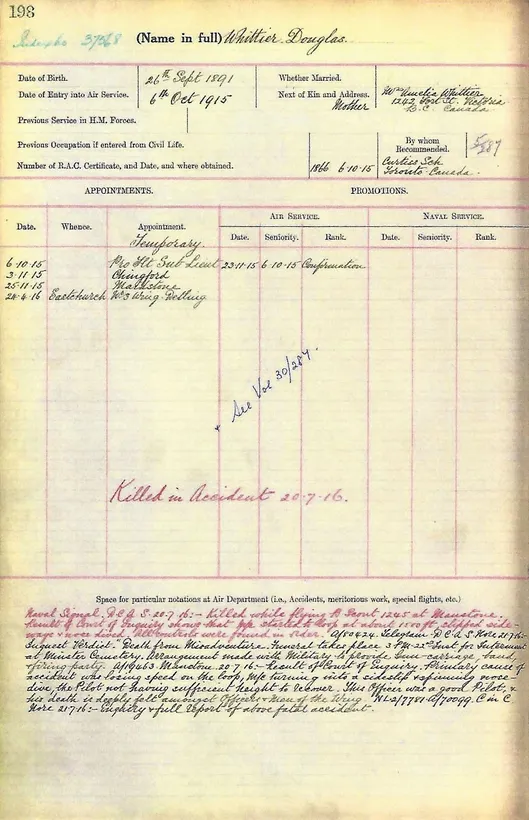 198
37568 (Name in full) Whittier. Douglas.
Date of Birth. 26th Sept 1891 Whether Married.
Date of Entry into Air Service. 6th Oct 1915 Next of Kin and Address. Mrs Amelia Whittier
Mother 1242 Fort St. Victoria
B.C. Canada
Previous Service in H.M. Forces.
Previous Occupation if entered from Civil Life. By whom Recommended.
Number of R.A.C. Certificate, and Date, and where obtained. 1866 6-10-15 Curtiss Sch
Toronto Canada.
APPOINTMENTS. PROMOTIONS.
AIR SERVICE. NAVAL SERVICE.
Date. Whence. Appointment. Date. Seniority. Rank. Date. Seniority. Rank.
Temporary.
6-10-15 Pro Flt Sub Lieut 23-11-15 6-10-15 Confirmation
3-11-15 Chingford
25-11-15
24-4-16 Eastchurch No 3 Wing Detling
+ See Vol 30/287.
Killed in Accident 20-7-16.
Space for particular notations at Air Department (i.e., Accidents, meritorious work, special flights, etc.)
Naval Signal. D.C.A.S. 20-7-16:- Killed while flying B. Scout 1245 at Manstone.
Result of Court of Enquiry show that M/c started to loop at about 1500ft, slipped side-
ways & nose dived. All controls were found in order. A/80424. Telegram. D.C.A.S. Nore 21-7-16:-
Inquest Verdict. Death from Misadventure. Funeral takes place 3 P.M. 22nd Inst for Interment
at Minster Cemetery. Arrangement made with Military to provide Gun-carriage, band,
& firing party. Manstone. 20-7-16:- Result of Court of Enquiry. Primary cause of
accident was losing speed on the loop, M/c turning into a sideslip & spinning nose-
dive, the Pilot not having sufficient height to recover. This Officer was a good Pilot, &
his death is deeply felt amongst Officers & Men of the Wing C in C
Nore 21-7-16:- Enquiry & full report of above fatal accident.